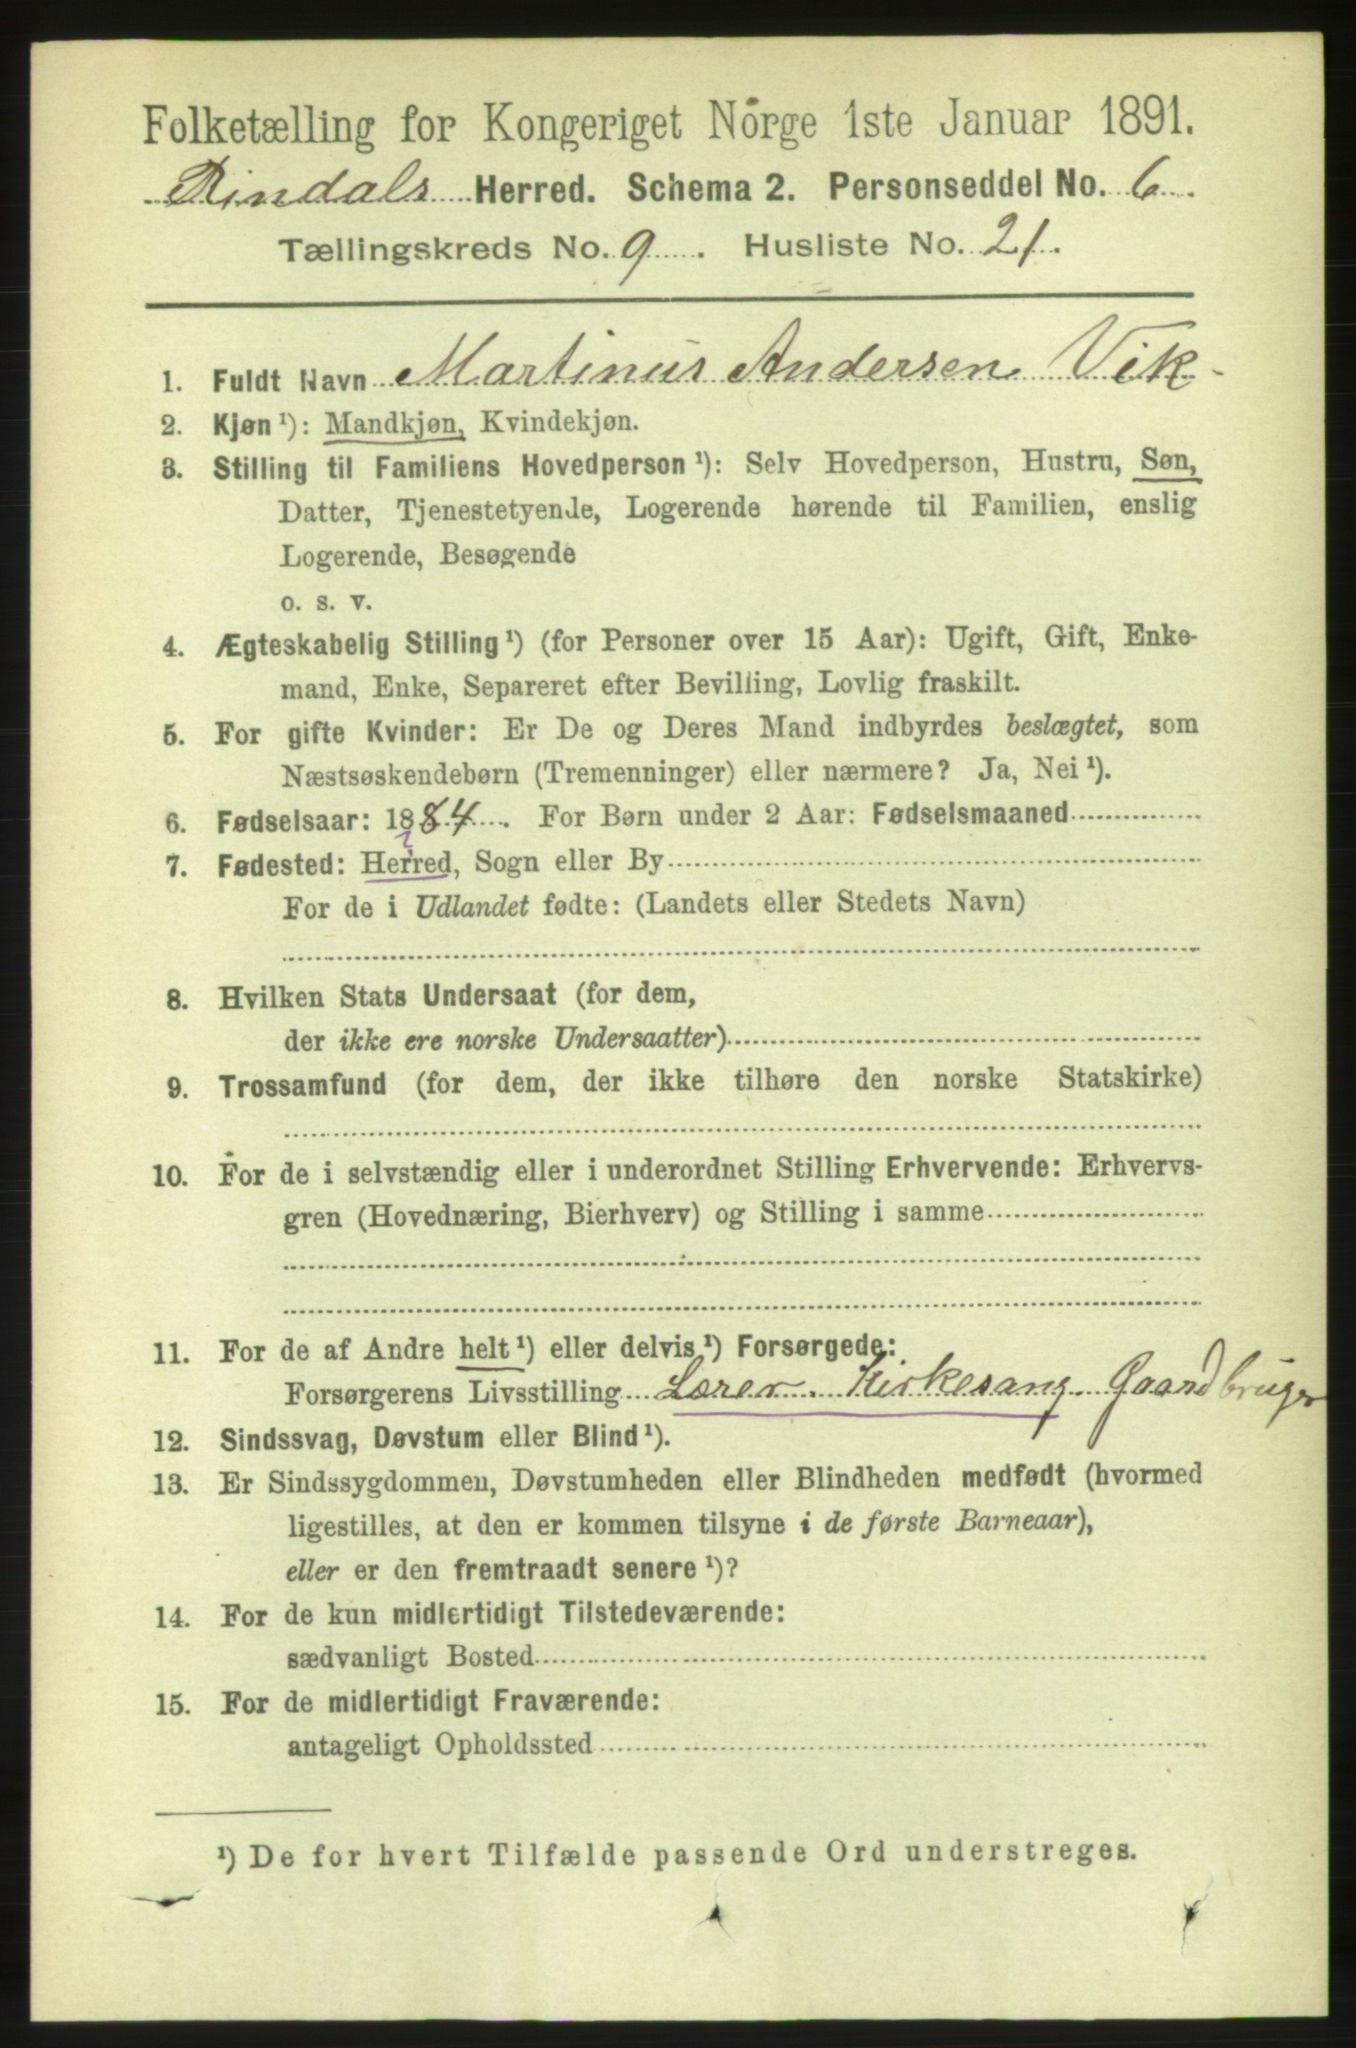 Folketælling for Kongeriget Norge 1ste Januar 1891.
Rindals Herred. Schema 2. Personseddel No. 6.
Tællingskreds No. 9. Husliste No. 21.
1. Fuldt Navn Martinus Andersen Vik
2. Kjøn ¹): Mandkjøn, Kvindekjøn.
3. Stilling til Familiens Hovedperson ¹): Selv Hovedperson, Hustru, Søn,
Datter, Tjenestetyende, Logerende hørende til Familien, enslig
Logerende, Besøgende
o. s. v.
4. Ægteskabelig Stilling ¹) (for Personer over 15 Aar): Ugift, Gift, Enke-
mand, Enke, Separeret efter Bevilling, Lovlig fraskilt.
5. For gifte Kvinder: Er De og Deres Mand indbyrdes beslægtet, som
Næstsøskendebørn (Tremenninger) eller nærmere? Ja, Nei ¹).
6. Fødselsaar: 1884. For Børn under 2 Aar: Fødselsmaaned
?
7. Fødested: Herred, Sogn eller By
For de i Udlandet fødte: (Landets eller Stedets Navn)
8. Hvilken Stats Undersaat (for dem,
der ikke ere norske Undersaatter)
9. Trossamfund (for dem, der ikke tilhøre den norske Statskirke)
10. For de i selvstændig eller i underordnet Stilling Erhvervende: Erhvervs-
gren (Hovednæring, Bierhverv) og Stilling i samme
11. For de af Andre helt ¹) eller delvis ¹) Forsørgede:
Forsørgerens Livsstilling Lærer. Kirkesang. Gaardbruger
12. Sindssvag, Døvstum eller Blind ¹).
13. Er Sindssygdommen, Døvstumheden eller Blindheden medfødt (hvormed
ligestilles, at den er kommen tilsyne i de første Barneaar),
eller er den fremtraadt senere ¹)?
14. For de kun midlertidigt Tilstedeværende:
sædvanligt Bosted
15. For de midlertidigt Fraværende:
antageligt Opholdssted
¹) De for hvert Tilfælde passende Ord understreges.